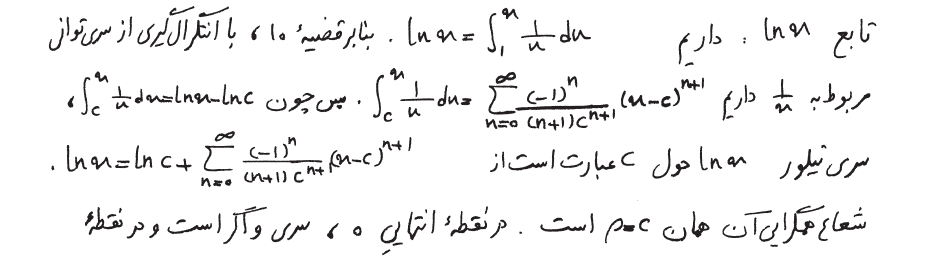 تابع ln x : داریم ln x = ∫_1^x 1/x dx . بنابر قضیهٔ ۱۰ ، با انتگرال‌گیری از سری توانی
مربوط به 1/x داریم ∫_c^x 1/x dx = ∑_{n=0}^∞ (-1)^n/((n+1)c^{n+1}) (x-c)^{n+1} . پس چون ∫_c^x 1/x dx = ln x - ln c ،
سری تیلور ln x حول c عبارت است از ln x = ln c + ∑_{n=0}^∞ (-1)^n/((n+1)c^{n+1}) (x-c)^{n+1} .
شعاع همگرایی آن همان ρ=c است . در نقطهٔ انتهایی ۰ ، سری واگراست و در نقطهٔ